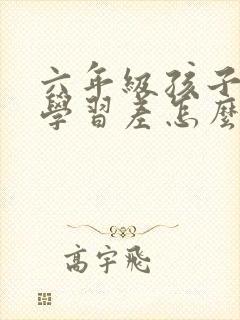 六年級孩子
學習差怎麼
高宇飛